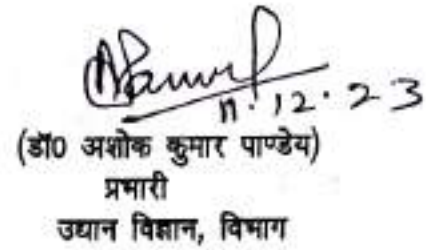 11.12.23
(डॉ0 अशोक कुमार पाण्डेय)
प्रभारी
उद्यान विज्ञान, विभाग